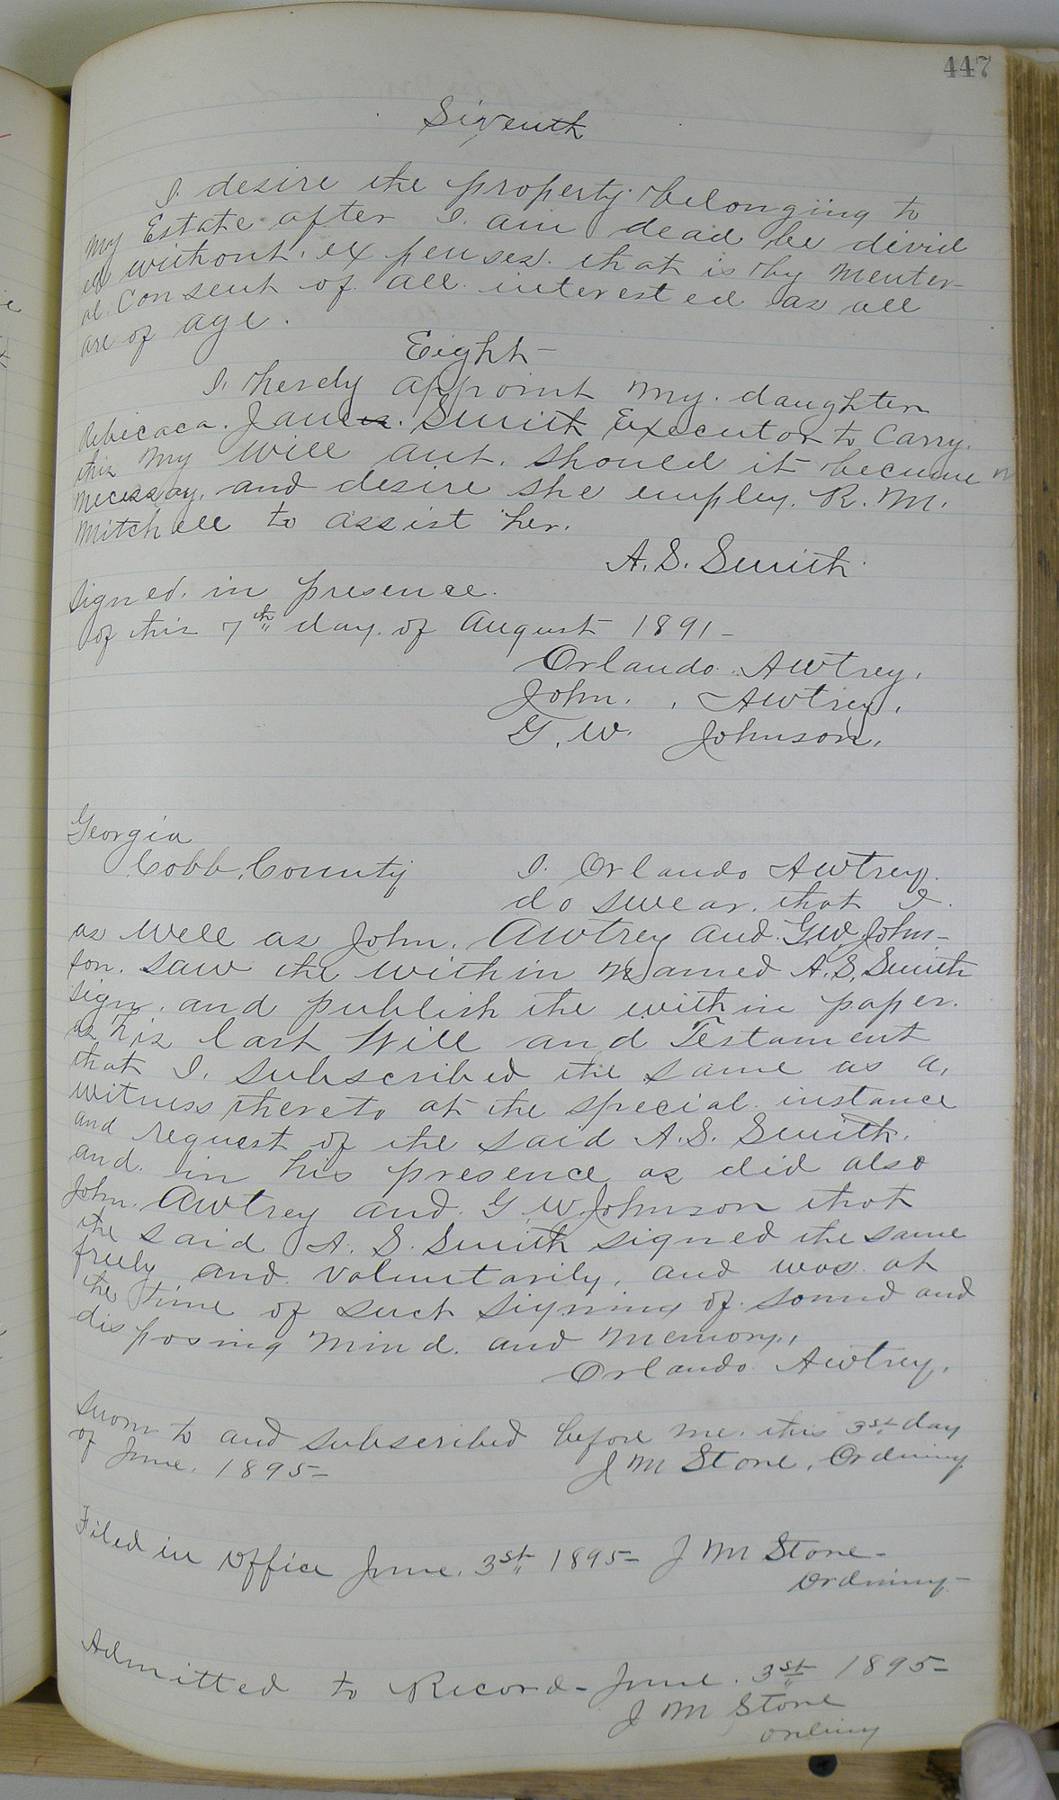 447
Siventh
I desire the property belonging to
my Estate after I am dead be divid
ed without expenses that is by Menter-
al Consent of all interested as all
are of age.
Eight
I herely appoint my daughter
Rebicaca Jane Smith Executor to Carry
this my will aut. should it become
necessay, and desire she employ R. M.
Mitchell to assist her.
A. S. Smith
Signed in presence
of this 7th day of August 1891-
Orlando Awtrey,
John Awtrey,
G. W. Johnson,
Georgia
Cobb County I Orlando Awtrey
do swear that I
as well as John Awtrey and G.W. John-
son saw the within Named A. S. Smith
sign and publish the within paper
as his last Will and Testament
that I subscribed the same as a,
witness thereto at the special instance
and request of the said A. S. Smith.
and in his presence as did also
John Awtrey and G W Johnson that
the said A. S. Smith signed the same
freely and voluntarily, and was at
the time of such signing of sound and
disposing mind and memory,
Orlando Awtrey,
Sworn to and subscribed before me this 3st day
of June 1895- J M Stone, Ordinary
Filed in Office June 3st 1895- J M Stone-
Ordinary-
Admitted to Record- June 3st 1895-
J M Stone
Ordinary